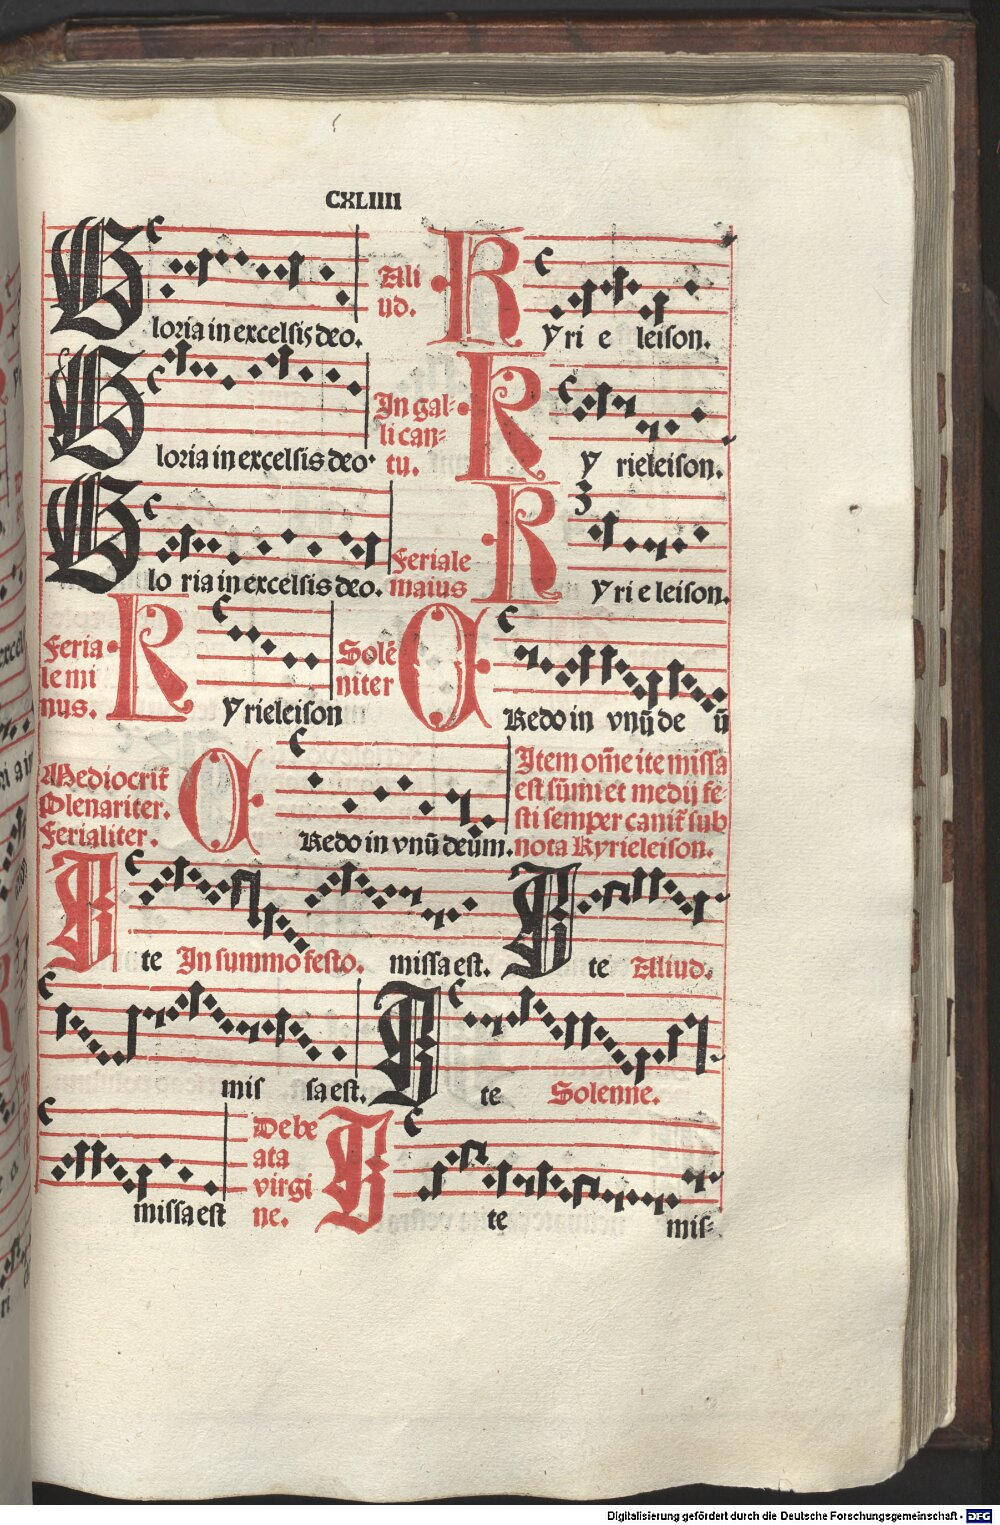 CXLIIII
Gloria in excelsis deo. Aliud. Kyri e leison.
Gloria in excelsis deo. In gal-
li can-
tu. Ky rieleison.
Glo ria in excelsis deo. Feriale
maius Kyri e leison.
Feria
le mi
nus. Kyrieleison Solē
niter Credo in vnū de ū
Mediocrit̄
Plenariter.
Ferialiter. Credo in vnū deum. Item om̄e ite missa
est sūmi et medij fe-
sti semper canit̄ sub
nota Kyrieleison.
Ite In summo festo. missa est. Ite Aliud.
mis sa est. Ite Solenne.
missa est De be
ata
virgi
ne. Ite mis-
Digitalisierung gefördert durch die Deutsche Forschungsgemeinschaft - DFG